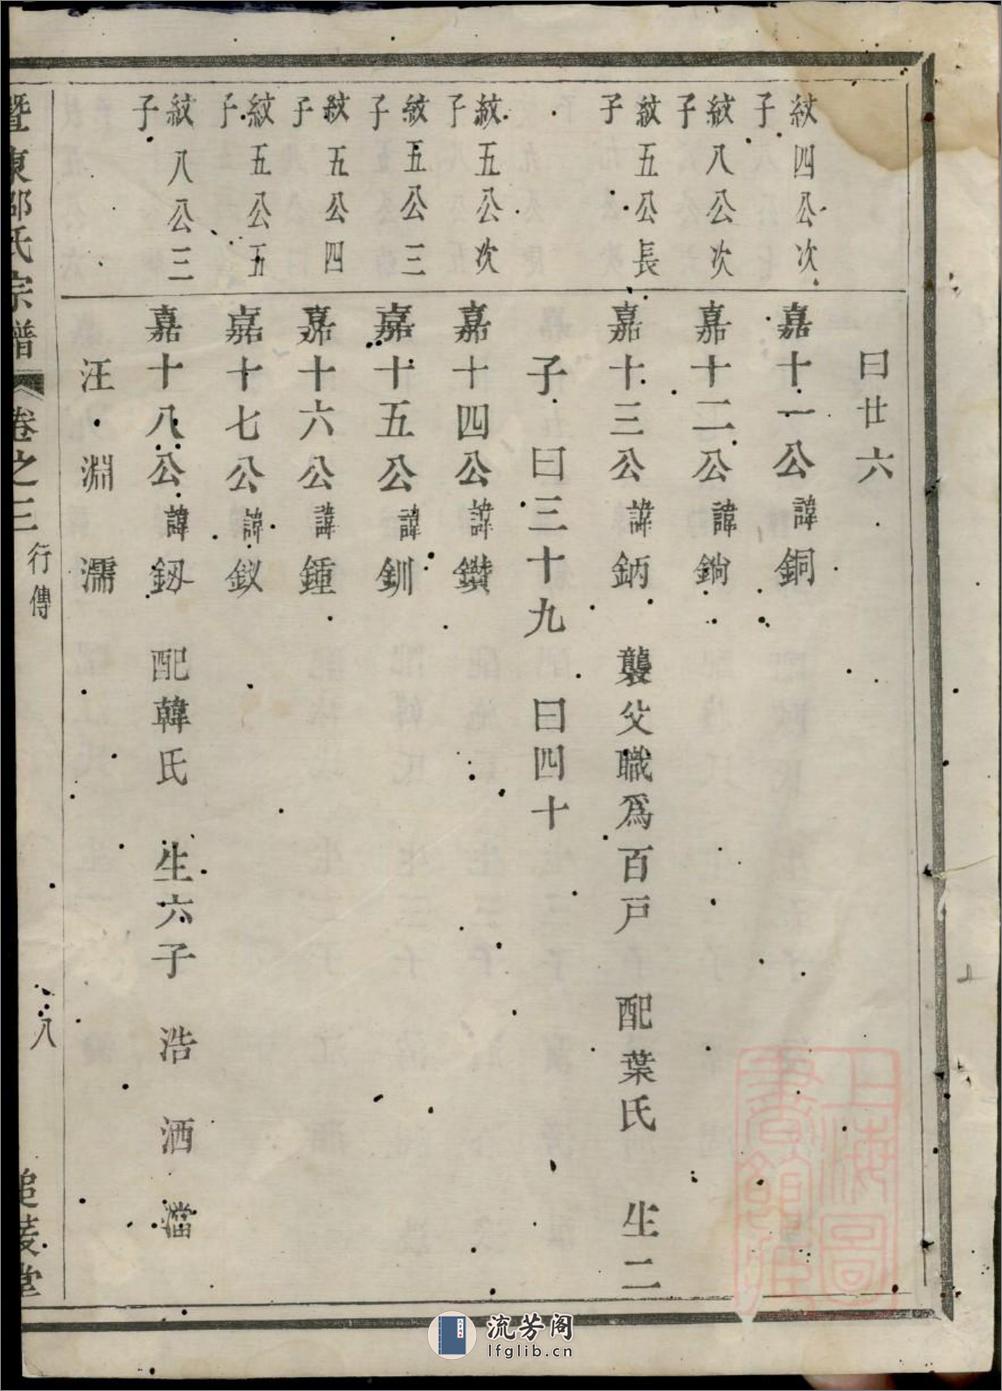 曰廿六
紋四公次子
嘉十一公諱銅
紋八公次子
嘉十二公諱鋿
紋五公長子
嘉十三公諱鈵 襲父職爲百戶 配葉氏 生二
子 曰三十九 曰四十
紋五公次子
嘉十四公諱鑽
紋五公三子
嘉十五公諱釧
紋五公四子
嘉十六公諱鍾
紋五公五子
嘉十七公諱釵
紋八公三子
嘉十八公諱釼 配韓氏 生六子 浩 洒 澢
汪 淵 濡
暨東邵氏宗譜 卷之三 行傳 八 堂
上海圖書館藏
流芳阁
lfglib.cn